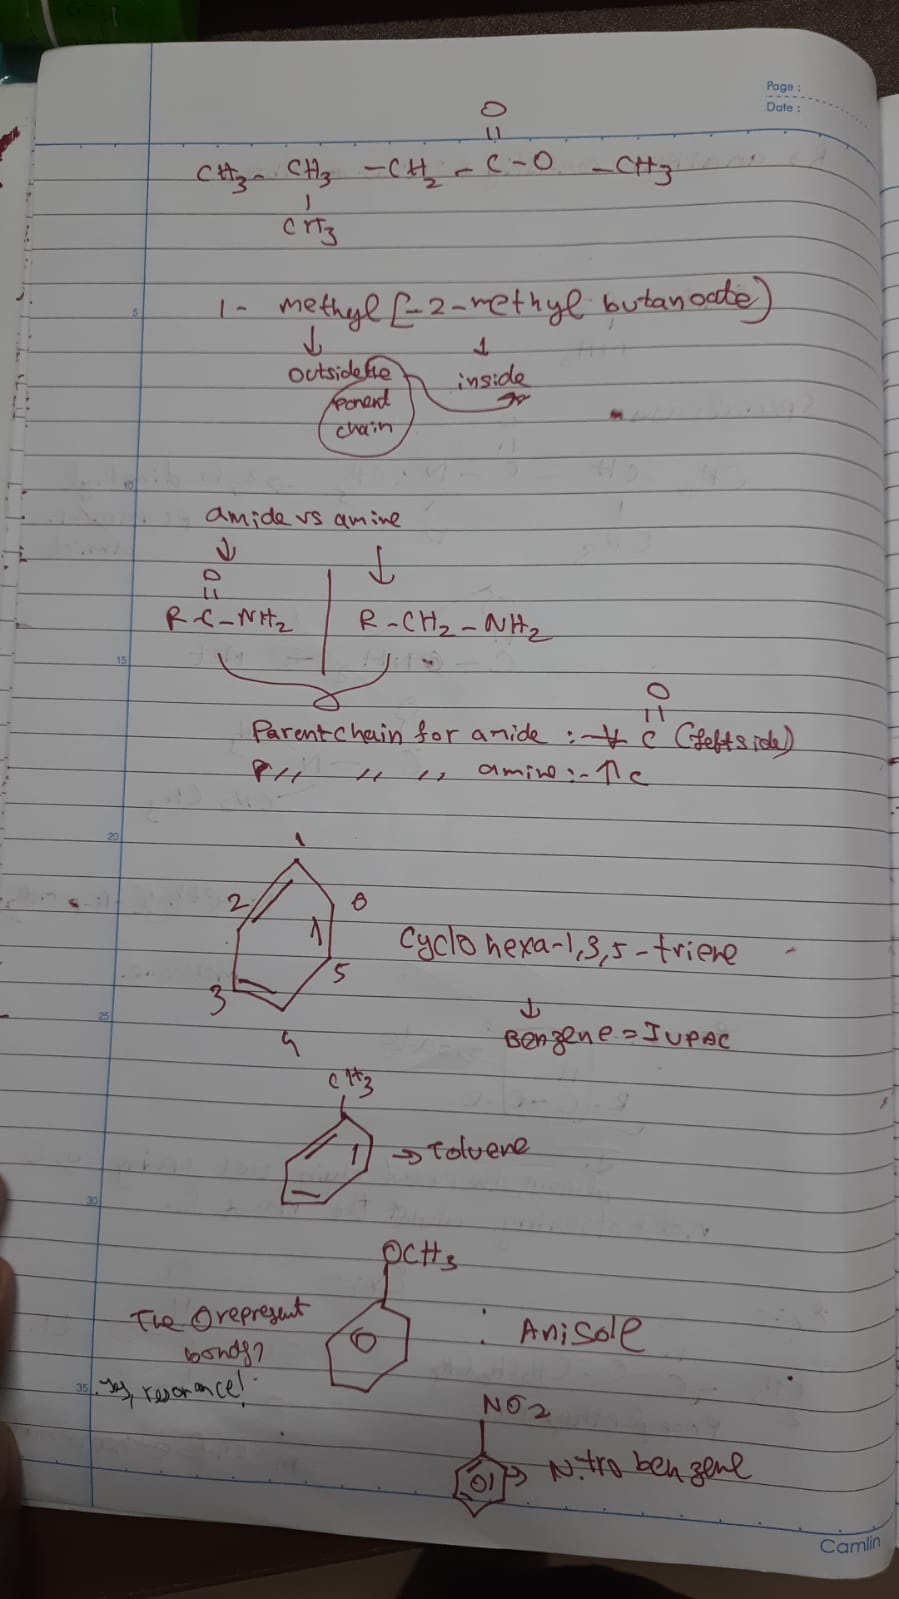 Page :
Date :
O
||
CH3 - CH3 - CH2 - C - O - CH3
|
CH3
1- methyl [-2-methyl butanoate)
↓ ↓
outside the inside
parent
chain
amide vs amine
↓ ↓
O
||
R-C-NH2 | R-CH2-NH2
O
||
Parent chain for amide :- C (left side)
P ,, ,, ,, amine :- ↑ C
1
2 6
5
3
4
Cyclo hexa-1,3,5-triene
↓
Benzene = IUPAC
CH3
→ Toluene
OCH3
The O represent
bonds?
Yes, resonance!
: Anisole
NO2
→ Nitro benzene
5
10
15
20
25
30
35
Camlin